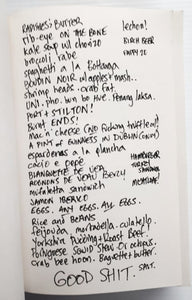 RADISHES! BUTTER
rib-eye ON THE BONE
lechon!
kale soup w/ chorizo
BIRCH BEER
broccoli rabe
PAPPY 20
spaghetti a la Bottarga
BOUDIN NOIR w/ apples & mash...
shrimp heads. crab fat.
UNI. pho. bun bo Hue. Penang laksa.
PORT & STILTON!
Burnt ENDS!
Mac 'n' cheese (NO fucking truffles!)
A PINT of GUINNESS in DUBLIN
espardenas a la plancha
cacio e pepe
HAMBURGER
BLANQUETTE DE VEAU
ROGNONS de Veau
muffaletta sandwich
JAMON IBERICO
EGGS. ANY EGGS. ALL EGGS.
Rice and BEANS
feijoada. mortadella. culatello.
Yorkshire Pudding & Roast Beef.
Portuguese Squid Stew or octopus.
Crab bee hoon. Baguette & butter.
SALT.
GOOD SHIT.